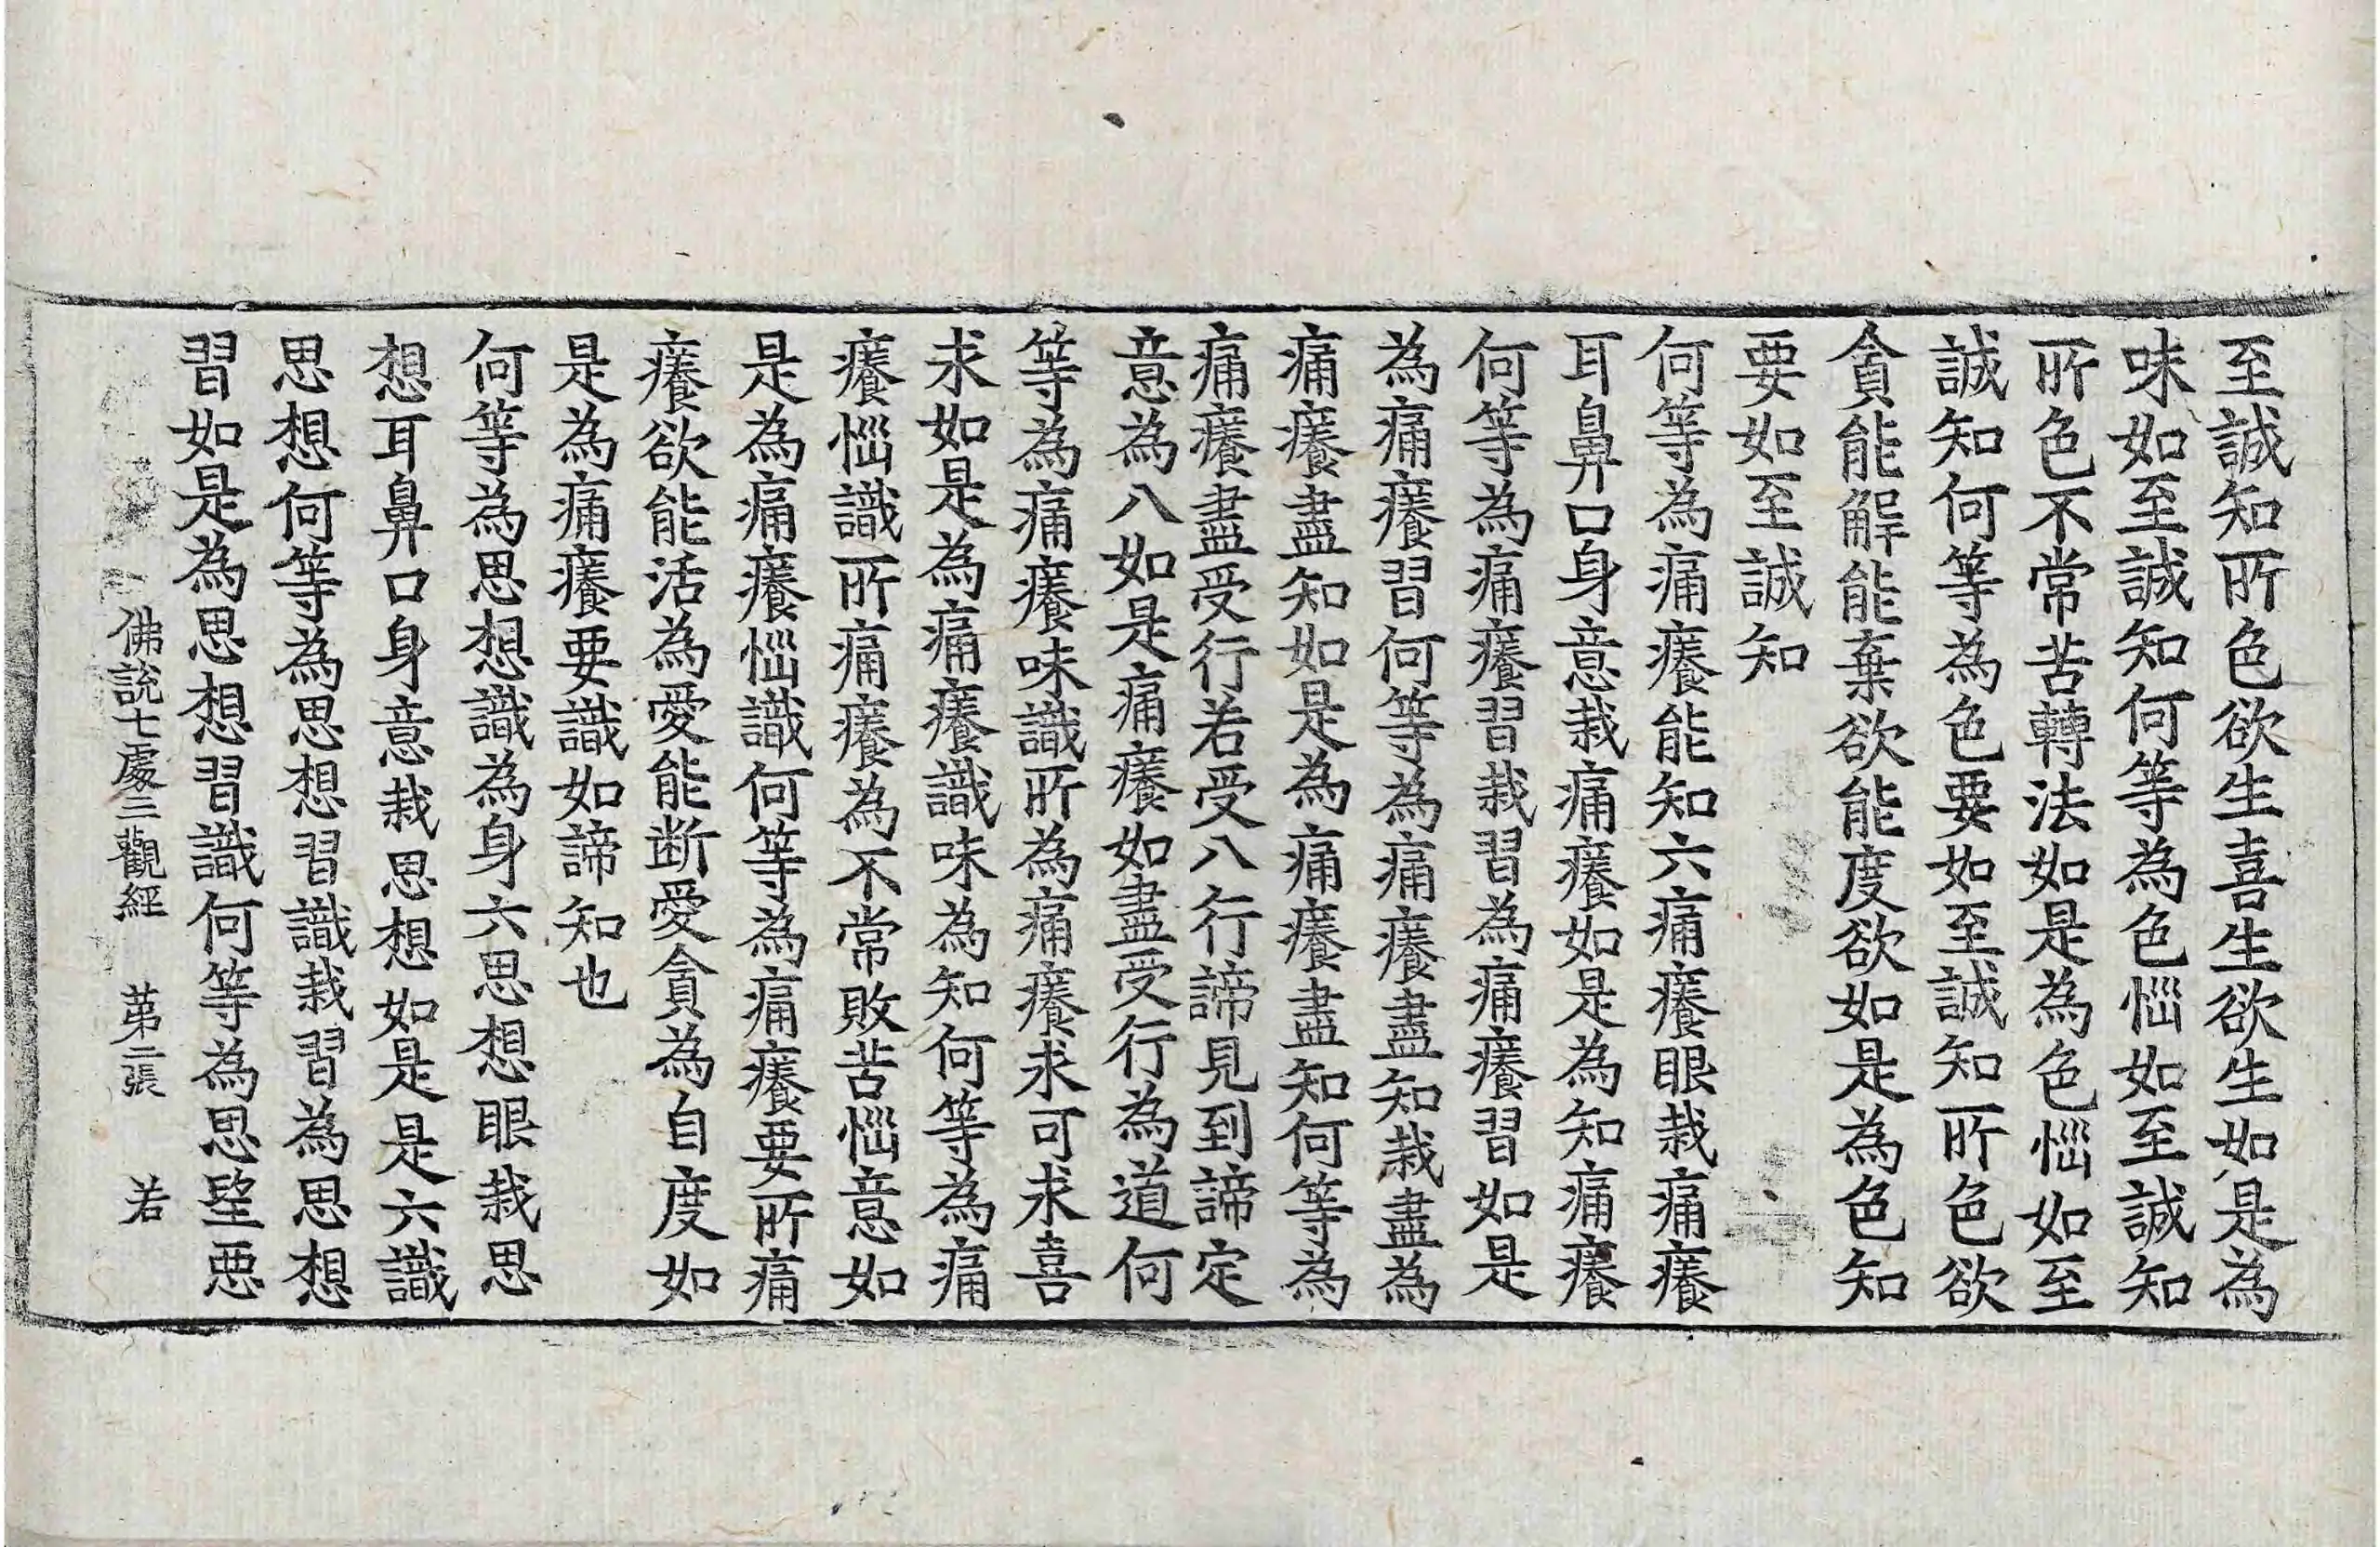 至誠知所色欲生喜生欲生如是為
味如至誠知何等為色惱如至誠知
所色不常苦轉法如是為色惱如至
誠知何等為色要如至誠知所色欲
貪能解能棄欲能度欲如是為色知
要如至誠知
何等為痛癢能知六痛癢眼栽痛癢
耳鼻口身意栽痛癢如是為知痛癢
何等為痛癢習栽習為痛癢習如是
為痛癢習何等為痛癢盡知栽盡為
痛癢盡知如是為痛癢盡知何等為
痛癢盡受行若受八行諦見到諦定
意為八如是痛癢如盡受行為道何
等為痛癢味識所為痛癢求可求喜
求如是為痛癢識味為知何等為痛
癢惱識所痛癢為不常敗苦惱意如
是為痛癢惱識何等為痛癢要所痛
癢欲能活為愛能断愛貪為自度如
是為痛癢要識如諦知也
何等為思想識為身六思想眼栽思
想耳鼻口身意栽思想如是是六識
思想何等為思想習識栽習為思想
習如是為思想習識何等為思𥁞悪
佛說七處三觀經　第二張　若